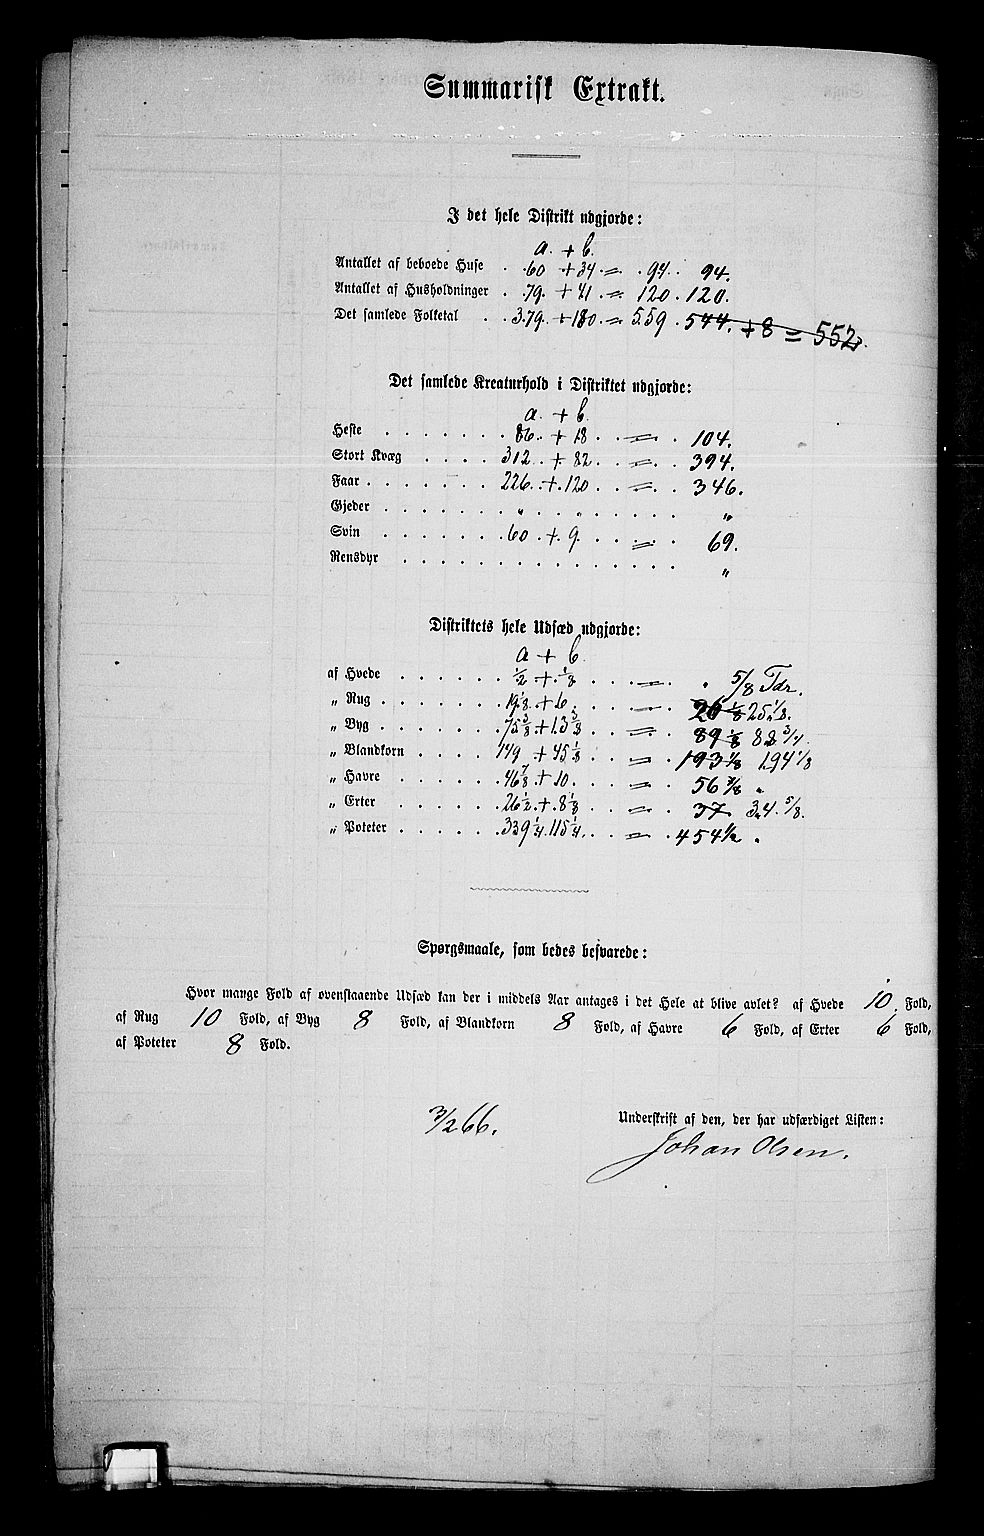 Summarisk Extrakt.
I det hele Distrikt udgjorde:
a. + b.
Antallet af beboede Huse . 60 + 34 = 94. 94.
Antallet af Husholdninger . 79. + 41 = 120. 120.
Det samlede Folketal . . 379. + 180. = 559. 544. + 8 = 552.
Det samlede Kreaturhold i Distriktet udgjorde:
a. + b.
Heste . . . . . . . 86. + 18 . . = . 104.
Stort Kvæg . . . . 312. + 82 . . = . 394.
Faar . . . . . . . 226. + 120 . . = . 346.
Gjeder . . . . . . . " . . " . . . . . "
Svin . . . . . . . 60 . + 9 . . . = . 69.
Rensdyr . . . . . . . . . . . . . . . "
Distriktets hele Udsæd udgjorde:
a + b
af Hvede . . . . . . 1/2 + 1/8 . . . = . 5/8 Tdr.
„ Rug . . . . . . . 19 1/8 + 6 . . . = 26 1/8 25 1/8.
„ Byg . . . . . . . 75 3/8 + 13 3/8 . . . = 89 1/8 88 3/4.
„ Blandkorn . . . . 149 + 45 1/8 . . = 193 7/8 194 1/8
„ Havre . . . . . . 46 7/8 + 10 . . . = 56 7/8 "
„ Erter . . . . . . 26 1/2 + 8 1/8 . . . = 37 34 5/8.
„ Poteter . . . . . 339 1/4 115 1/4 . . = 454 1/2 "
Spørgsmaale, som bedes besvarede:
Hvor mange Fold af ovenstaaende Udsæd kan der i middels Aar antages i det Hele at blive avlet? af Hvede 10. Fold,
af Rug 10 Fold, af Byg 8 Fold, af Blandkorn 8 Fold, af Havre 6 Fold, af Erter 6 Fold,
af Poteter 8 Fold.
3/2 66.
Underskrift af den, der har udfærdiget Listen:
Johan Olsen.